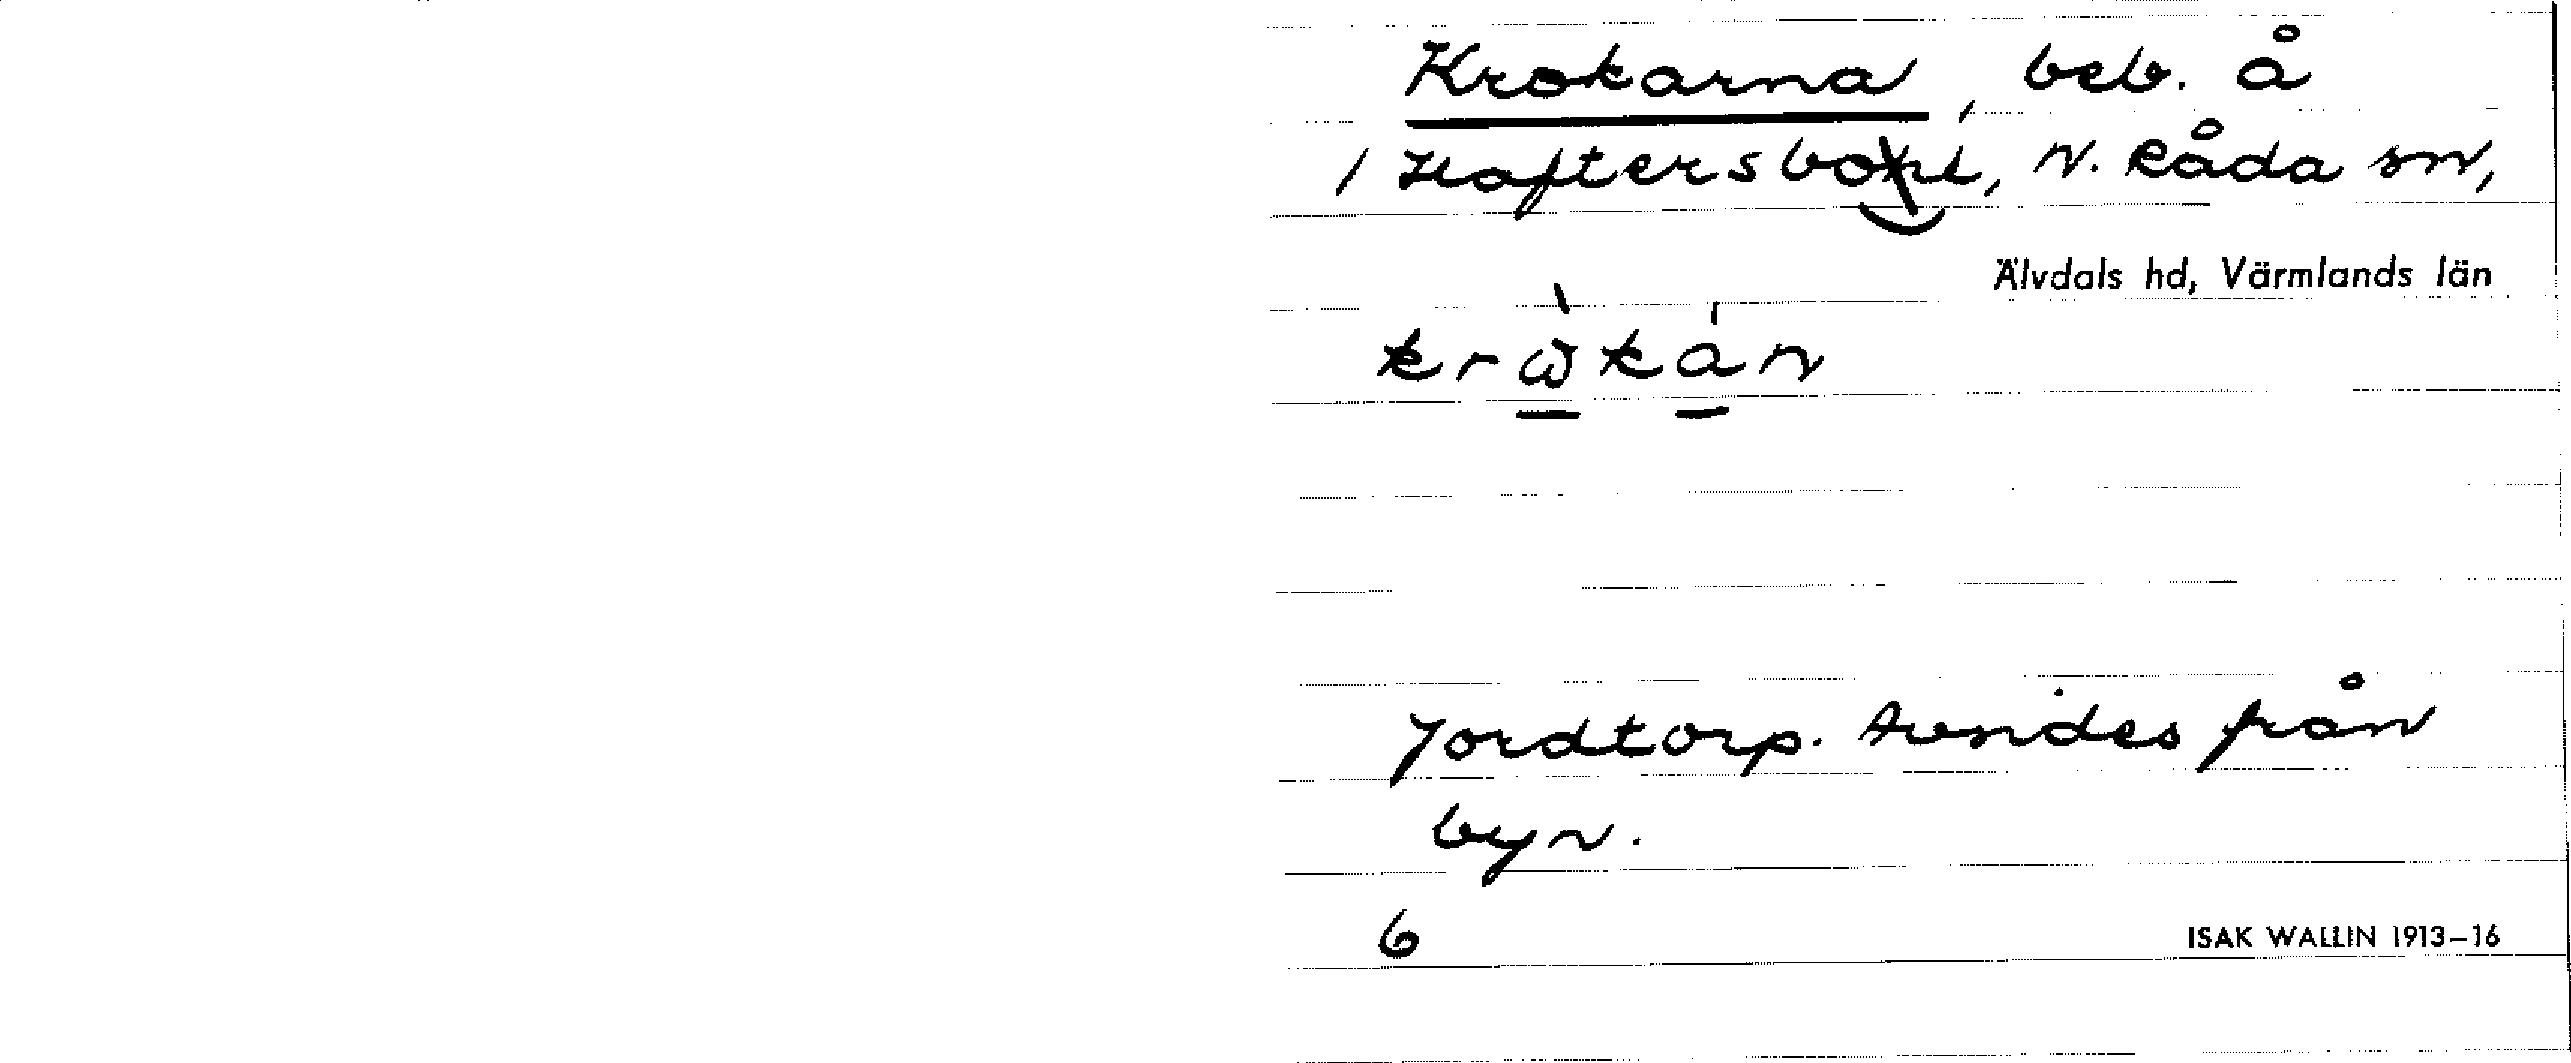 Krokarna, beb. å
/ Haftersbohl, N. Råda sn,
Älvdals hd, Värmlands län
krὼkán
Jordtorp. Arendes från
byn.
6
ISAK WALLIN 1913–16